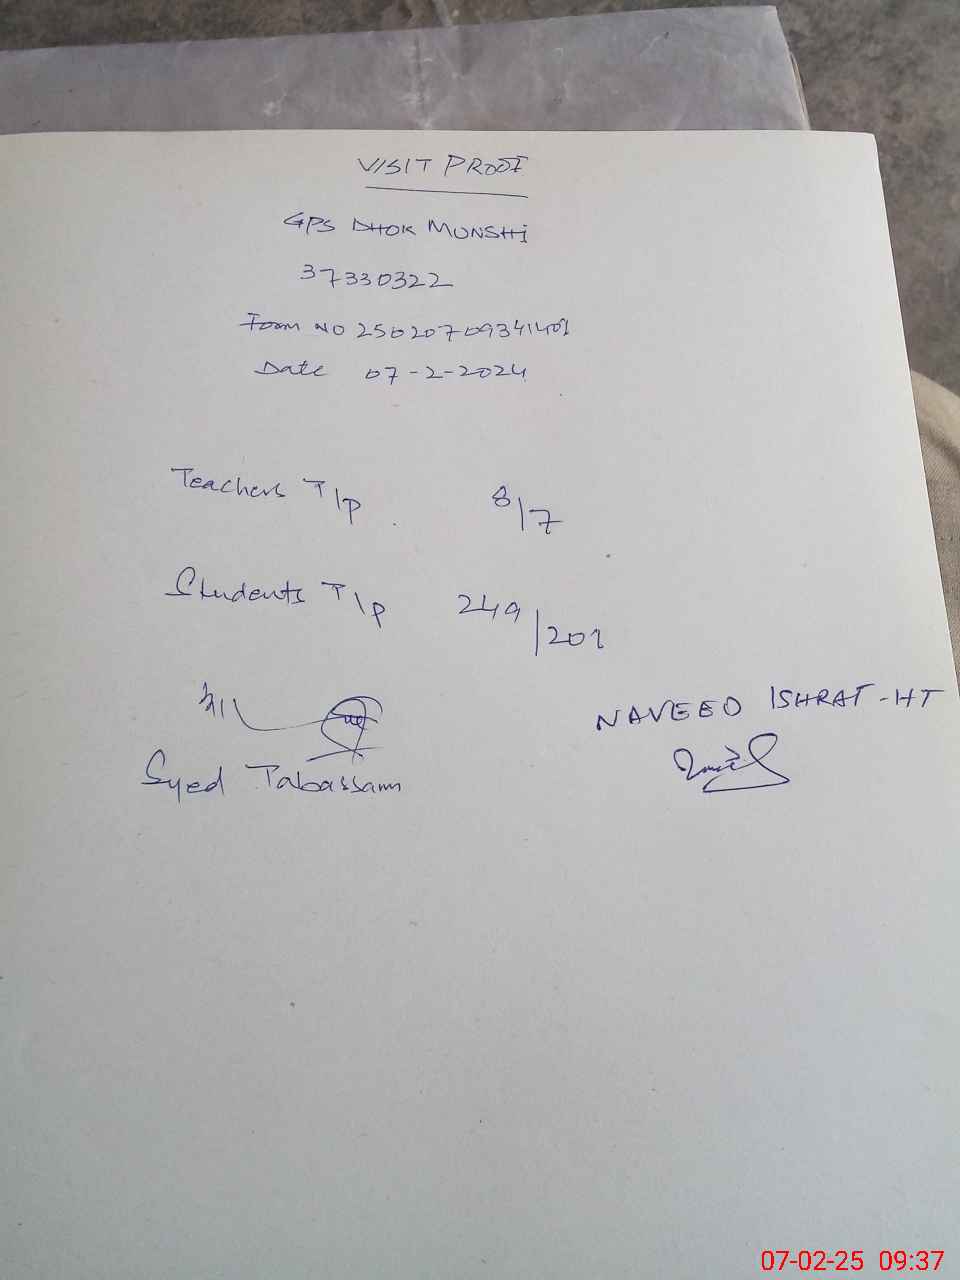 VISIT PROOF
GPS DHOK MUNSHI
37330322
Form NO 25020709341401
Date 07-2-2024
Teachers T/P 8/7
Students T\P 249/201
NAVEED ISHRAT-HT
Syed Tabassam
07-02-25 09:37